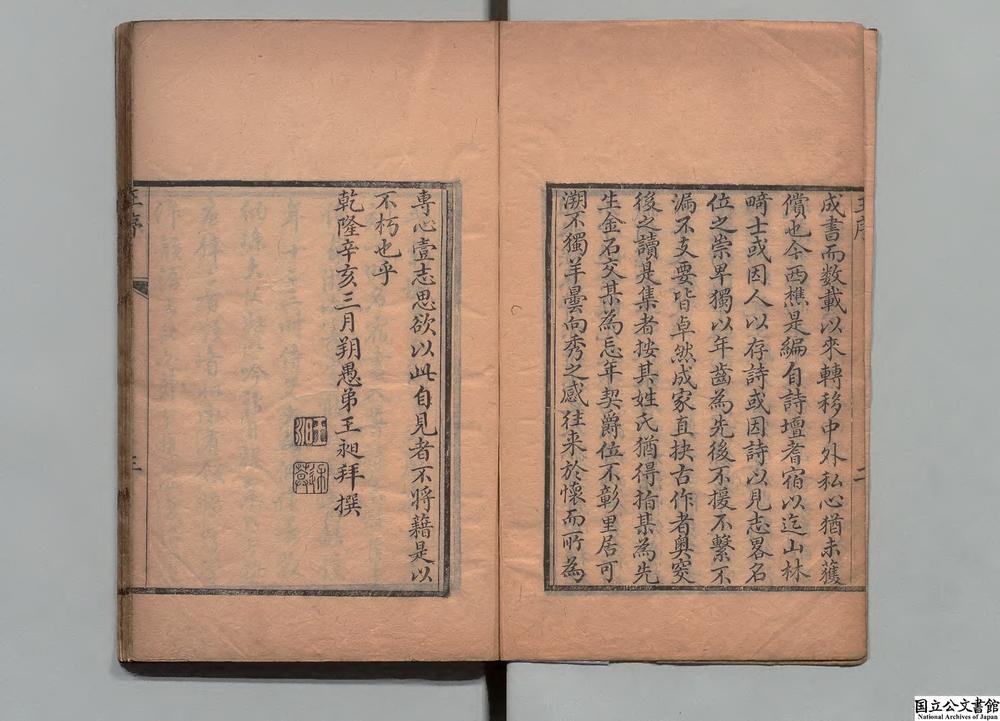 成書而數載以來轉移中外私心猶未獲
償也今西樵是編自詩壇耆宿以迄山林
畸士或因人以存詩或因詩以見志畧名
位之崇卑獨以年齒為先後不援不繫不
漏不支要皆卓然成家直抉古作者奧窔
後之讀是集者按其姓氏猶得指某為先
生金石交某為忘年契爵位不彰里居可
溯不獨羊曇向秀之感往来於懷而所為
王序
二
專心壹志思欲以此自見者不將藉是以
不朽也乎
乾隆辛亥三月朔愚弟王昶拜撰
王昶
王序
三
国立公文書館
National Archives of Japan